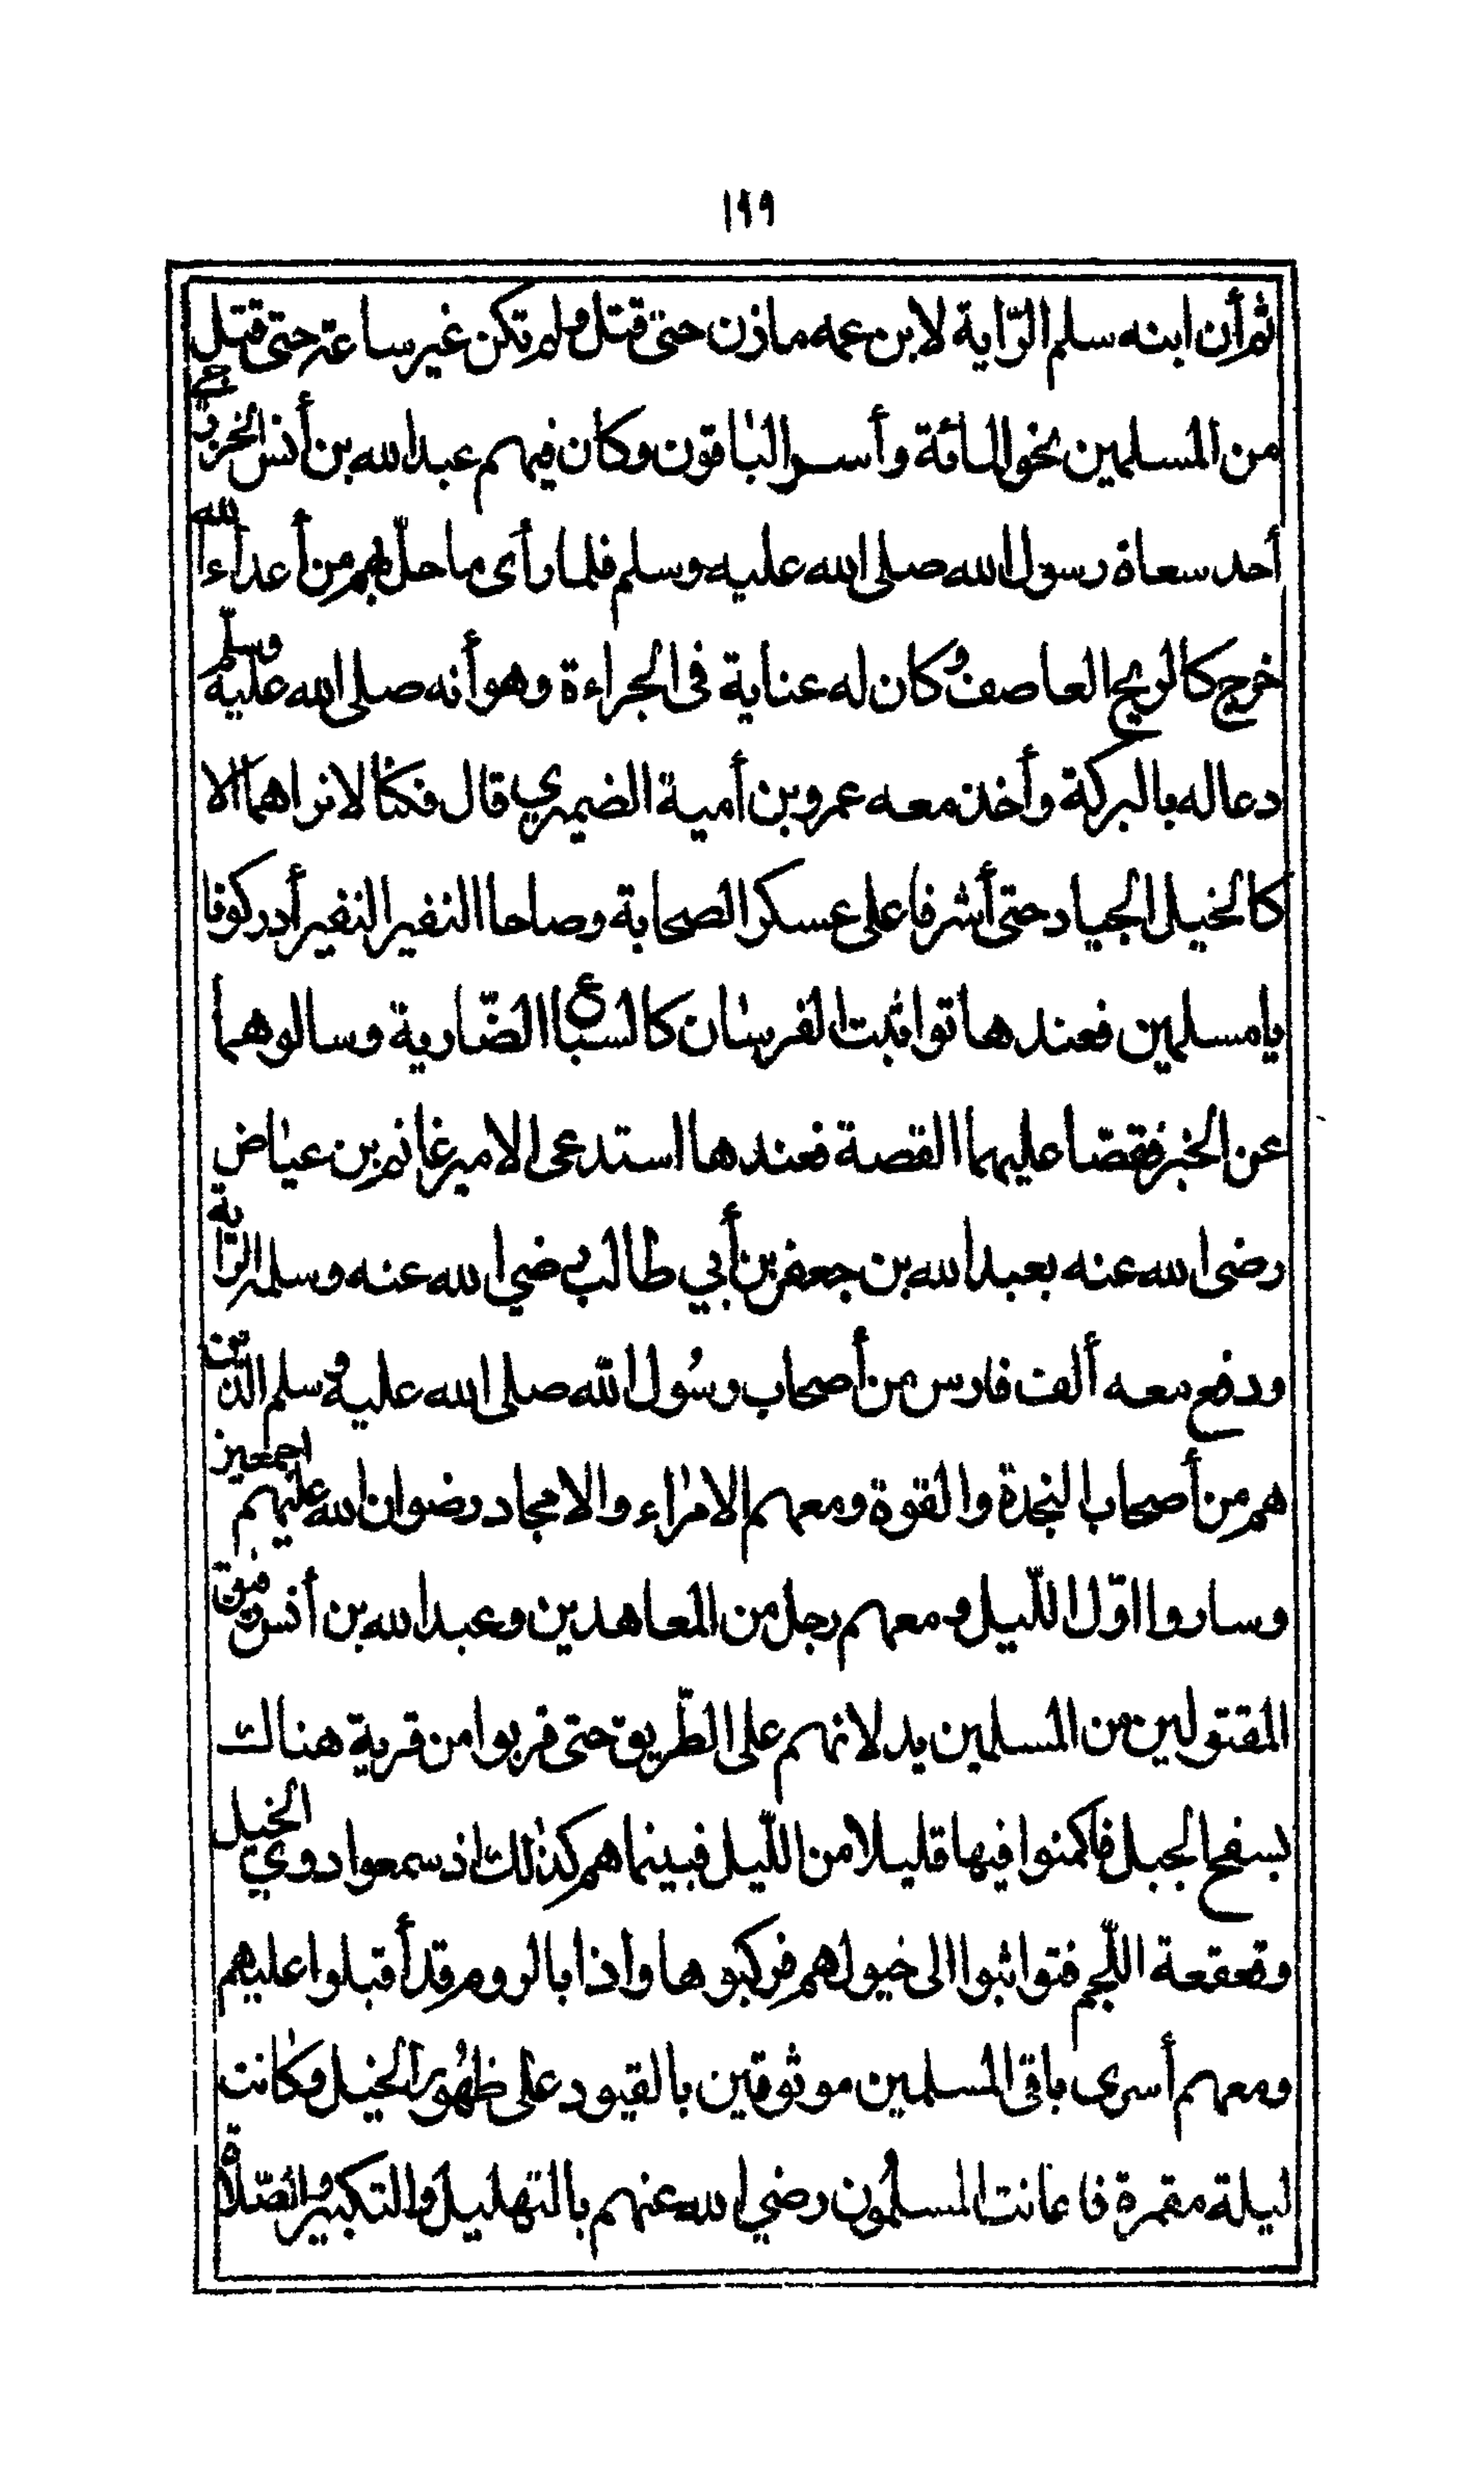 ١٩٩
ثم أن ابنه سلم الرّاية لابن عمه ماذن حتى قتل ولم تكن غير ساعة حتى قتل
من المسلمين نحو المائة وأسر الباقون وكان فيهم عبد الله بن أنس الخزرجي
أحد سعاة رسول الله صلى الله عليه وسلم فلما رأى ما حلّ بهم من أعداء الله
خرج كالريح العاصف وكان له عناية في الجراءة وهو أنه صلى الله عليه وسلّم
دعا له بالبركة وأخذ معه عمرو بن أمية الضيمري قال فكنا لا نراهما الا
كالخيل الجياد حتى أشرفا على عسكر الصحابة وصاحا النفير النفير أدركونا
يا مسلمين فعندها تواثبت الفرسان كالسباع الضّارية وسالوهما
عن الخبر فقصّا عليهما القصة فعندها استدعى الامير غانم بن عياض
رضى الله عنه بعبد الله بن جعفر بن أبي طالب رضي الله عنه وسلمه الرّاية
ودفع معه ألف فارس من أصحاب رسُول الله صلى الله عليه وسلم الذين
هم من أصحاب النجدة والقوة ومعهم الامراء والامجاد رضوان الله عليهم اجمعين
وساروا اوّل اللّيل ومعهم رجل من المعاهدين وعبد الله بن أنس رفيق
المقتولين من المسلمين يدلانهم على الطّريق حتى قربوا من قرية هناك
بسفح الجبل فاكمنوا فيها قليلا من اللّيل فبينما هم كذلك اذ سمعوا دوي الخيل
وقعقعة اللّجم فتواثبوا الى خيولهم فركبوها واذا بالروم قد أقبلوا عليهم
ومعهم أسرى باقى المسلمين موثوقين بالقيود على ظهُور الخيل وكانت
ليلة مقمرة فاعانت المسلمُون رضي الله عنهم بالتهليل والتكبير والصّلاة